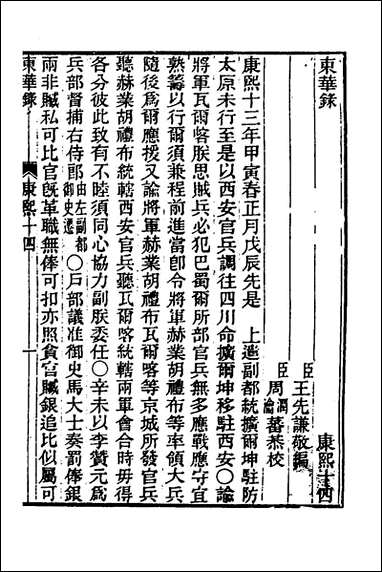 東華錄
康熙十四
臣王先謙敬編
臣周潤蕃周瀹蕃恭校
康熙十三年甲寅春正月戊辰先是　上遣副都統擴爾坤駐防
太原未行至是以西安官兵調往四川命擴爾坤移駐西安〇諭
將軍瓦爾喀朕思賊兵必犯巴蜀爾所部官兵無多應戰應守宜
熟籌以行爾須兼程前進當卽令將軍赫業胡禮布等率領大兵
隨後爲爾應援又諭將軍赫業胡禮布瓦爾喀等京城所發官兵
聽赫業胡禮布統轄西安官兵聽瓦爾喀統轄兩軍會合時毋得
各分彼此致有不睦須同心協力副朕委任〇辛未以李贊元爲
兵部督捕右侍郎由左副都御史遷〇戶部議准御史馬大士奏罰俸銀
兩非贓私可比官旣革職無俸可扣亦照貪官贓銀追比似屬可
東華錄
康熙十四
一